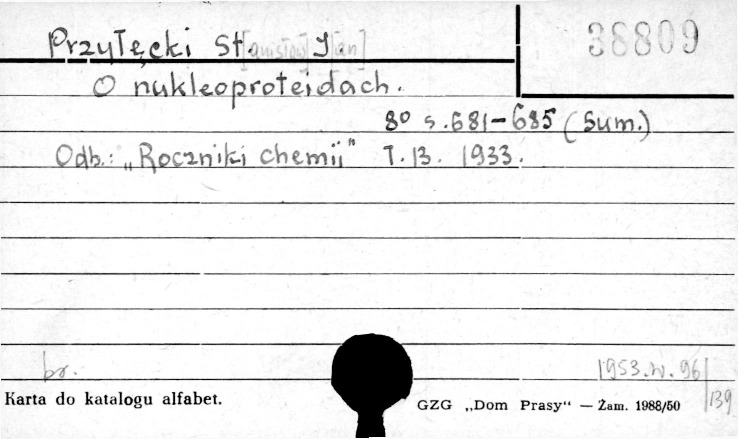 Przyłęcki St[anisław] J[an]
38809
O nukleoproteidach.
8° s. 681-685 (Sum.)
Odb.: „Roczniki chemii" T. 13. 1933.
br.
1953.W.96/139
Karta do katalogu alfabet.
GZG „Dom Prasy“ — Zam. 1988/50